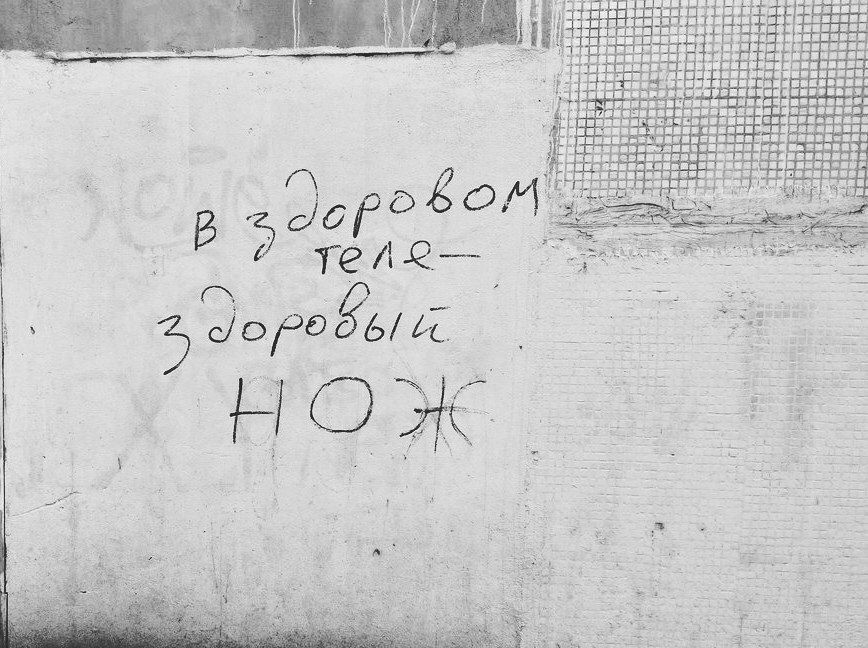 в здоровом
теле–
здоровый
НОЖ